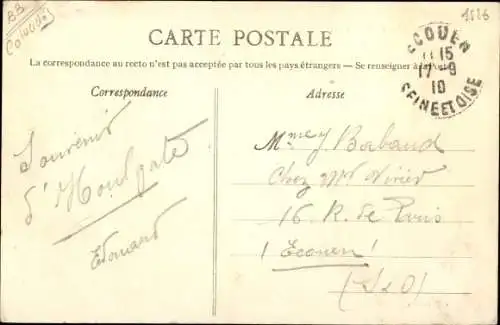 BB
1586
CARTE POSTALE
La correspondance au recto n'est pas acceptée par tous les pays étrangers. — Se renseigner à la Poste
Correspondance
Adresse
ECOUEN
11 15
17-9
10
SEINE ET OISE
Souvenir
d'Houlgate
Edouard
Mme J Babaud
Chez Mr
16 R. de Paris
Ecouen
(S&O)